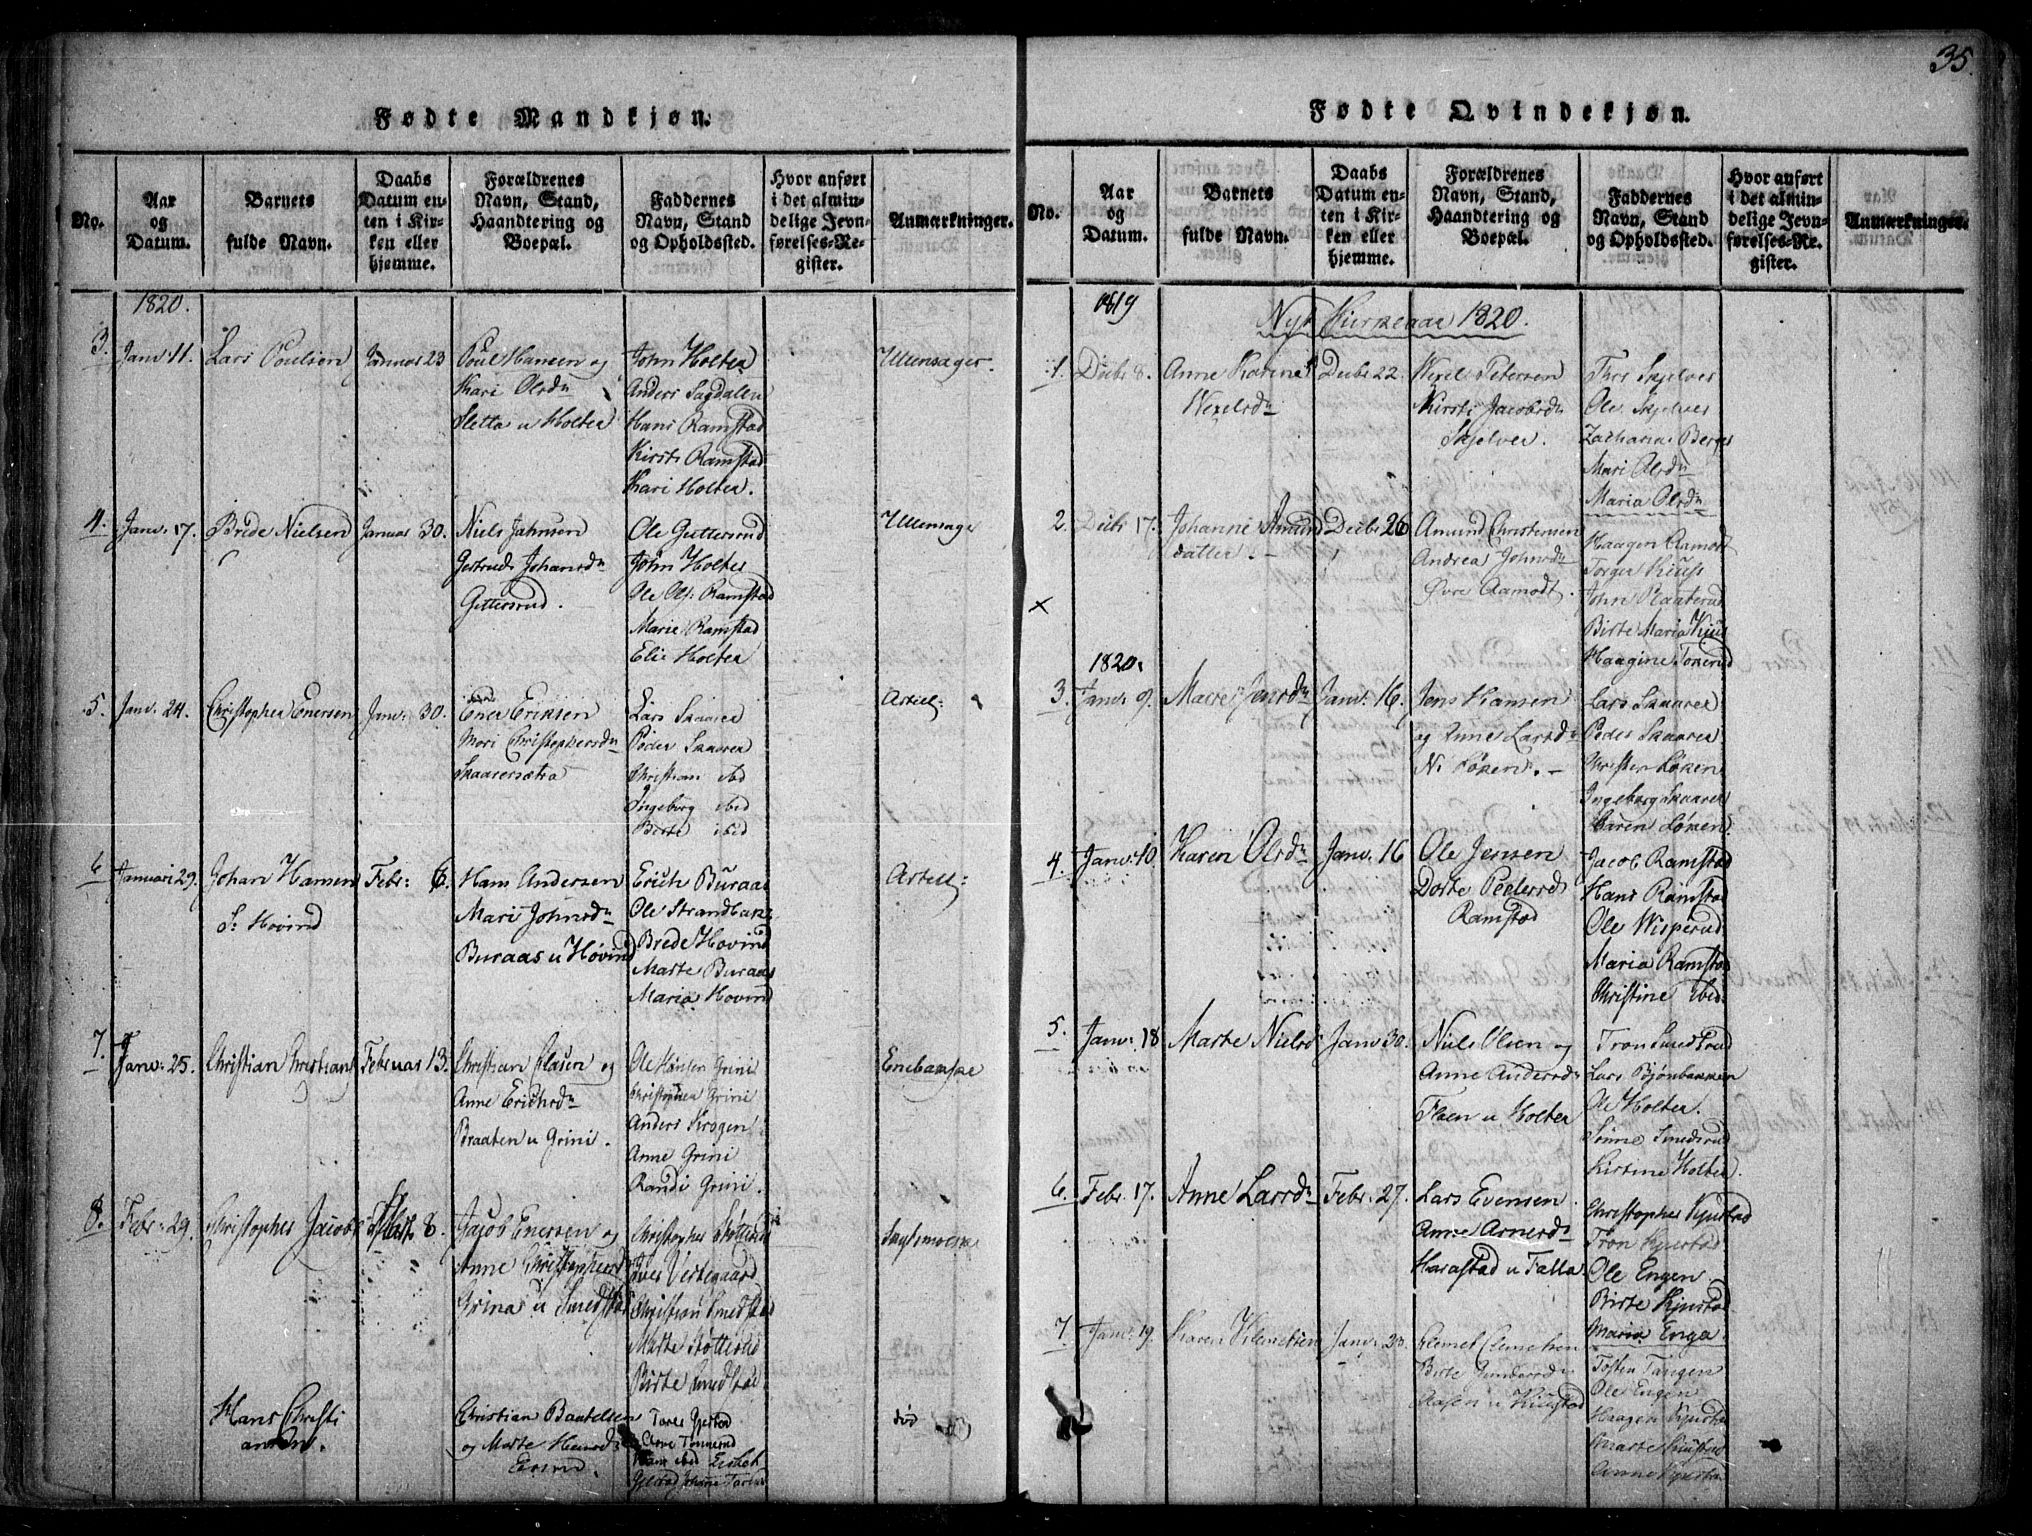 35.
Fødte Mandkjøn.
No.
Aar
og
Datum.
Barnets
fulde Navn.
Daabs
Datum en-
ten i Kir-
ken eller
hjemme.
Forældrenes
Navn, Stand,
Haandtering og
Boepæl.
Faddernes
Navn, Stand
og Opholdssted.
Hvor anført
i det almin-
delige Jevn-
førelses-Re-
gister.
Anmærkninger.
1820.
3.
Janv. 11.
Lars Poulsen
Januar 23
Poul Hansen og
Kari Olsdn
Sletta u Holter
John Holter
Anders Sagdalen
Hans Ramstad
Kirsti Ramstad
Kari Holter.
Ullensager.
4.
Janv. 17.
Brede Nielsen
Januar 30.
Niels Jahnsen
Gertrud Johansdn
Guttersrud.
Ole Guttersrud
John Holter
Ole Ols. Ramstad
Marie Ramstad
Elie Holter
Ullensager
5.
Janv. 24.
Christopher Enersen
Janv. 30.
Ener Eriksen
Mari Christophersdn
Skaarersætra
Lars Skaarer
Peder Skaarer
Christian ibid
Ingeborg ibid
Birte ibid
Artell:
6
Januari 29.
Johan Hansen
S. Hovind
Febr: 6.
Hans Andersen
Mari Johnsdn
Buraas u Høvind
Erich Buraas
Ole Strandbak
Brede Hovind
Marte Buraas
Maria Hovind
Artell:
7.
Janv: 25.
Christian Christians
Februar 13.
Christian Clasen og
Anne Erichsdn
Braaten u Grini.
Ole Hansen Grini
Christopher Grini
Anders Krogen
Anne Grini
Randi Grini.
Enebakke
8.
Febr: 29.
Christopher Jacobs
8.
Jacob Enersen og
Anne Christophersd
Grina u Smedstad
Christopher
Iver Vestegaard
Christian Smedstad
Marte
Birte Smedstad
Hans Christi
ansen.
Christian Baatelsen
og Marte Hansd
død
Fødte Qvindekjøn.
No.
Aar
og
Datum.
Barnets
fulde Navn.
Daabs
Datum en-
ten i Kir-
ken eller
hjemme.
Forældrenes
Navn, Stand,
Haandtering og
Boepæl.
Faddernes
Navn, Stand
og Opholdssted.
Hvor anført
i det almin-
delige Jevn-
førelses-Re-
gister.
Anmærkninger.
1819
Nyt Kirkeaar 1820.
1.
Decbr 8.
Anne Karine
Wexelsdn
Decbr 22.
Wexel Petersen
Kirsti Jacobsdn
Skjelver.
Thor Skjelver
Ole Skjelver
Zacharias Berger
Mari Olsdn
Maria Olsdn
2.
Decbr 17.
Johanne Amund
datter.
Decbr 26
Amund Christensen
Andrea Johnsdn
Øvre Aamodt.
Haagen Aamodt
Torger Kiuss
John Raaterud
Birte Maria Kius
Haagine Toxerud
x
1820.
3.
Janv. 9.
Maree Jensdn
Janv. 16.
Jens Hansen
og Anne Larsdn
N. Løken.
Lars Skaarer
Peder Skaarer
Christen Løken
Ingeborg Skaarer
Karen Løken
4.
Janv. 10
Karen Olsdn
Janv. 16
Ole Jensen
Dorte Pedersd
Ramstad
Jacob Ramstad
Hans Ramstad
Ole Wisperud
Maria Ramstad
Christine ibid.
5.
Janv. 18
Marte Nielsd
Janv 30.
Niels Olsen og
Anne Andersdn
Flaen u Holter
Tron Smedsrud
Lars Bjønbakken
Ole Holter.
Sønne Smedsrud
Kirstine Holter.
6.
Febr. 17.
Anne Larsdn
Febr. 27.
Lars Evensen
Anne Arnesdn
Harastad u Falla
Christopher Kjustad
Tron Kjustad
Ole Engen
Birte Kjustad
Maria Enga
7
Janv. 19.
Karen Klemetsen
Janv. 30.
Clemet Clemetsen
Birte Gundersdn
Aasen u Kiustad
Tosten Tangen
Ole Engen
Haagen Kjustad
Marte Kjustad
Anne Kjustad